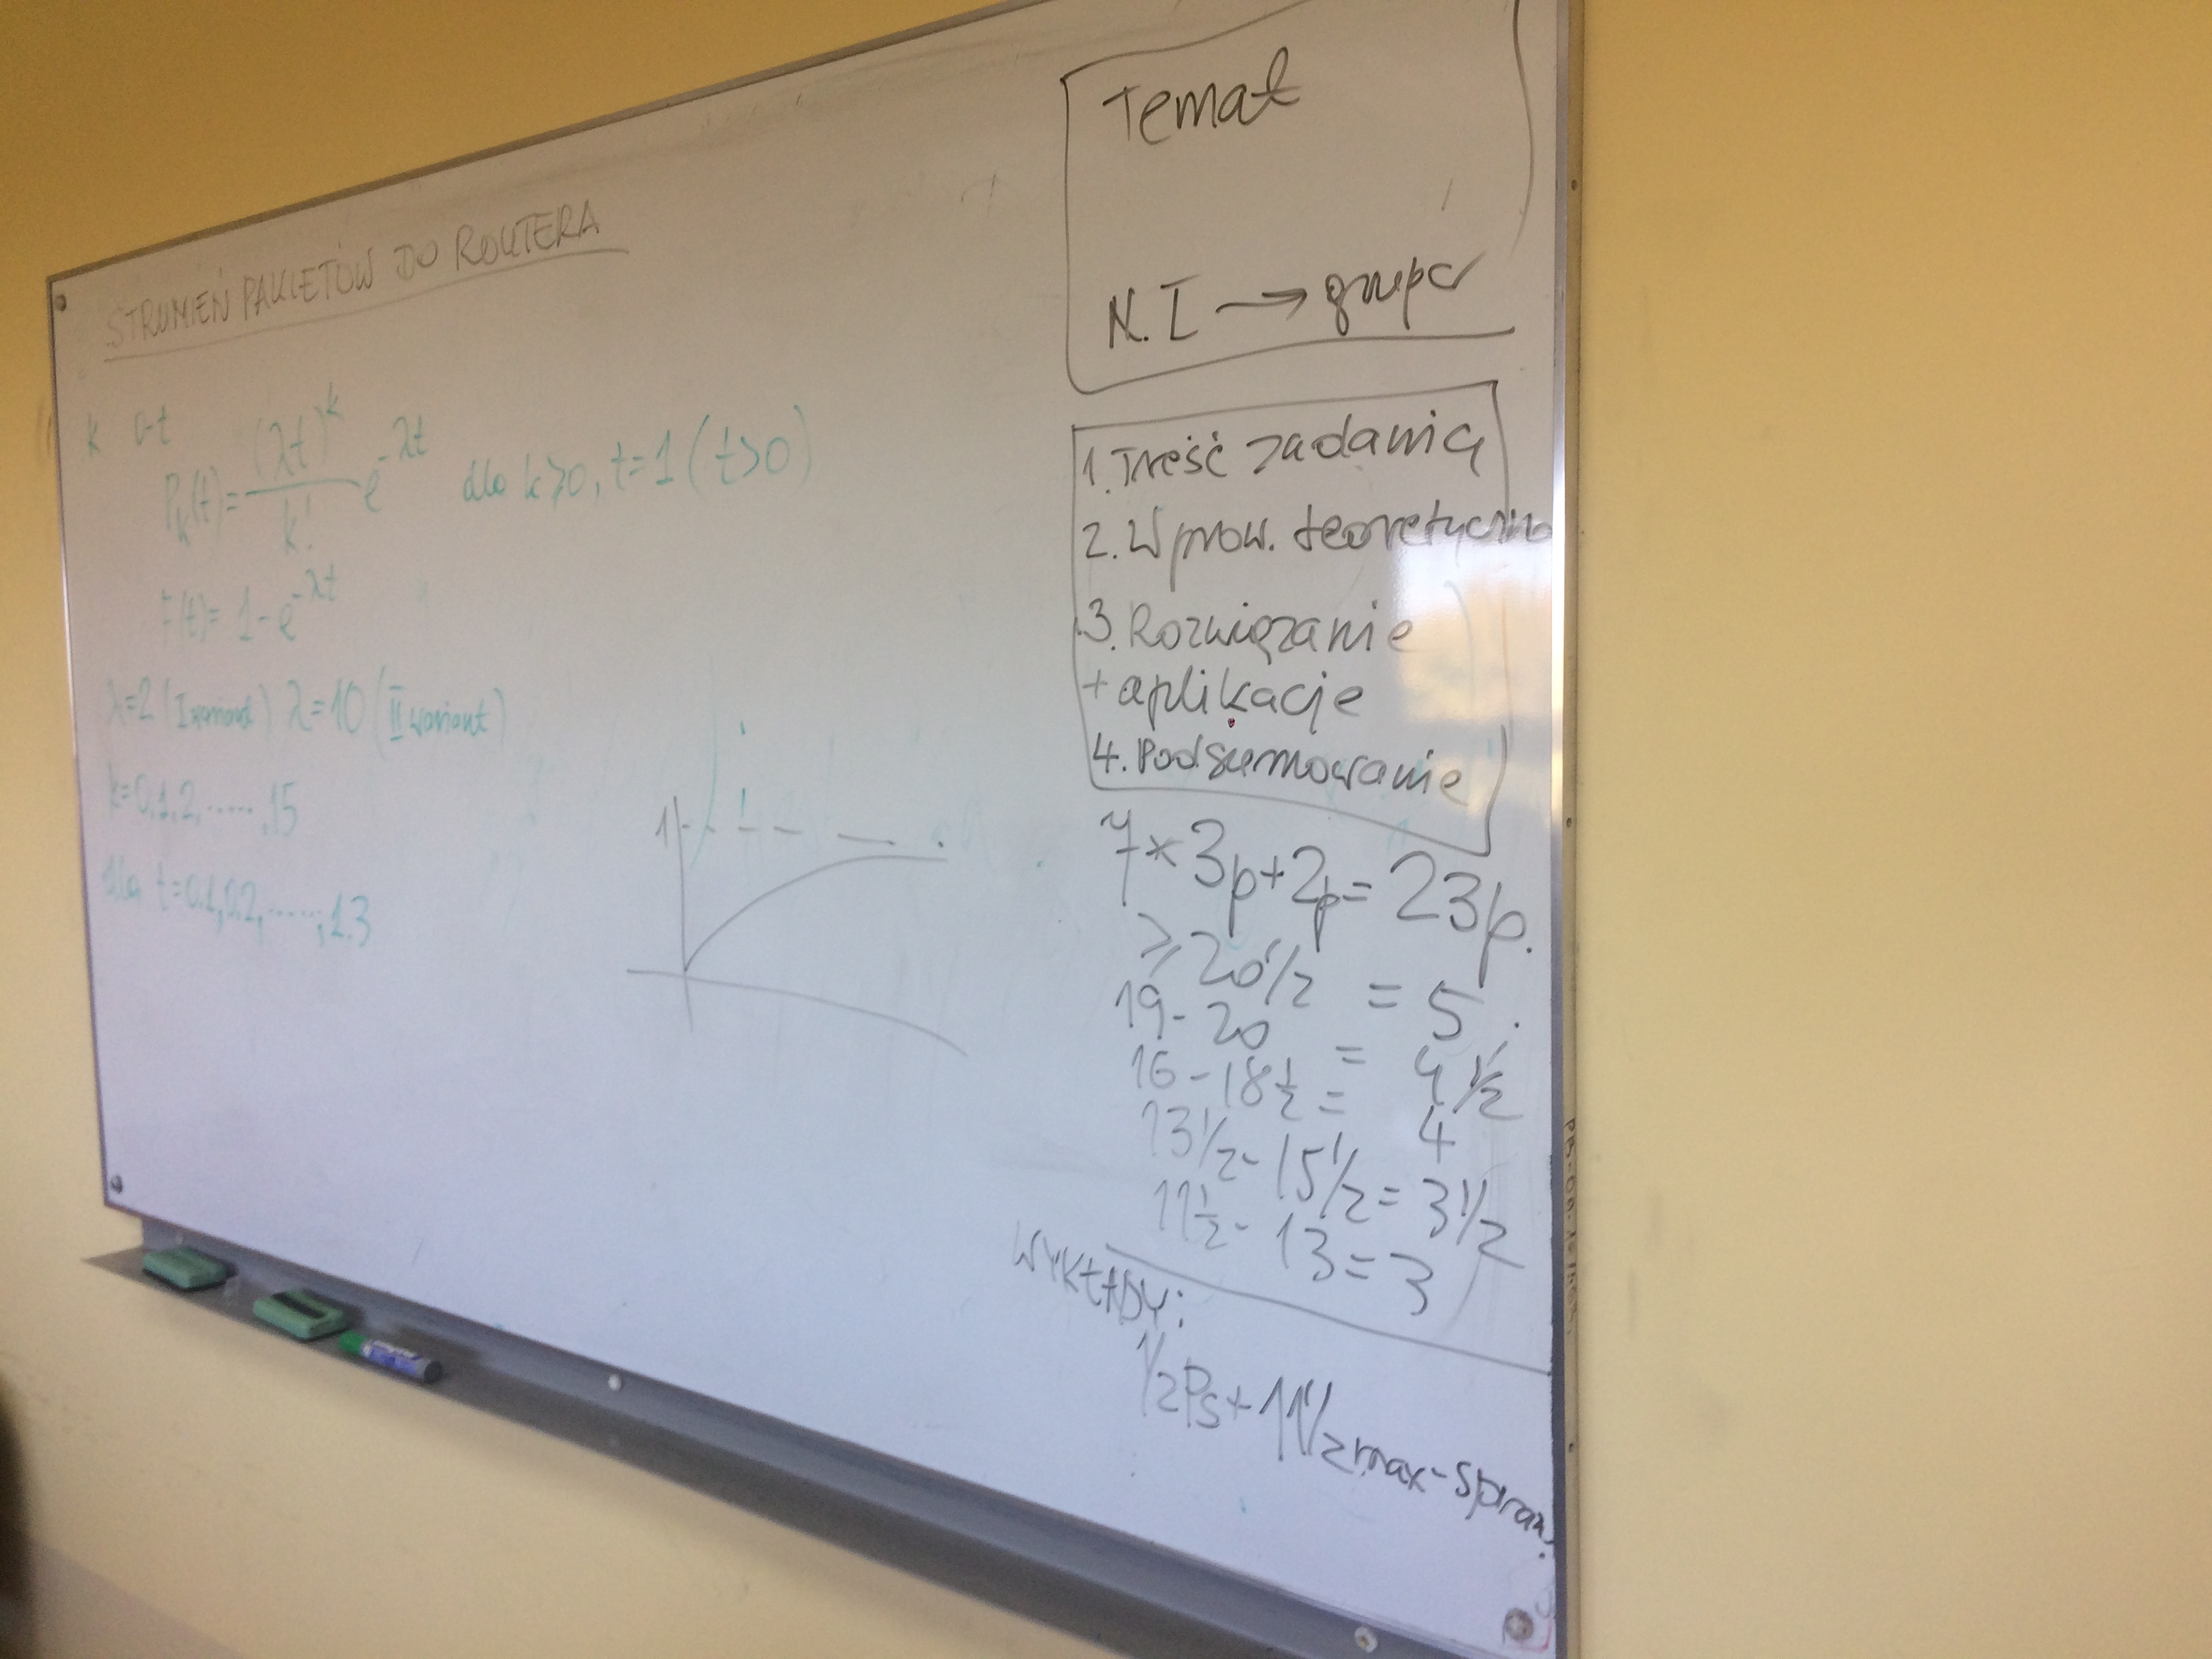 STRUMIEŃ PAKIETÓW DO ROUTERA
k 0-t
P_k(t) = (λt)^k / k! e^-λt dla k≥0, t=1 (t>0)
F(t) = 1 - e^-λt
λ=2 (I wariant) λ=10 (II wariant)
k=0,1,2,.....,15
dla t=0.1,0.2,.....;1.3
1
Temat
N. I → grupa
1. Treść zadania
2. Wprow. teoretyczne
3. Rozwiązanie
+ aplikacje
4. Podsumowanie
7*3p+2p=23p.
≥20 1/2 = 5
19-20 = 4 1/2
16-18 1/2 = 4
13 1/2 - 15 1/2 = 3 1/2
11 1/2 - 13 = 3
WYKŁADY:
1/2 Ps + 11 1/2 max - Spraw.